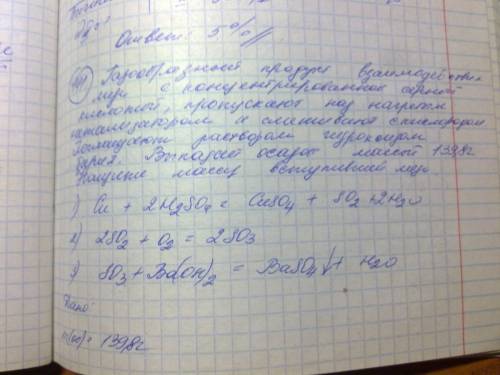 Ответ: 5%
Газообразный продукт взаимодействия
меди с концентрированной серной
кислотой, пропускают над нагретым
катализатором и смешивают с кислородом
раствором гидроксида
бария. Выпадает осадок массой 139,8г
массу вступившей меди
1) Cu + 2H2SO4 = CuSO4 + SO2 + 2H2O
2) 2SO2 + O2 = 2SO3
3) SO3 + Ba(OH)2 = BaSO4↓ + H2O
Дано:
m(ос) = 139,8г